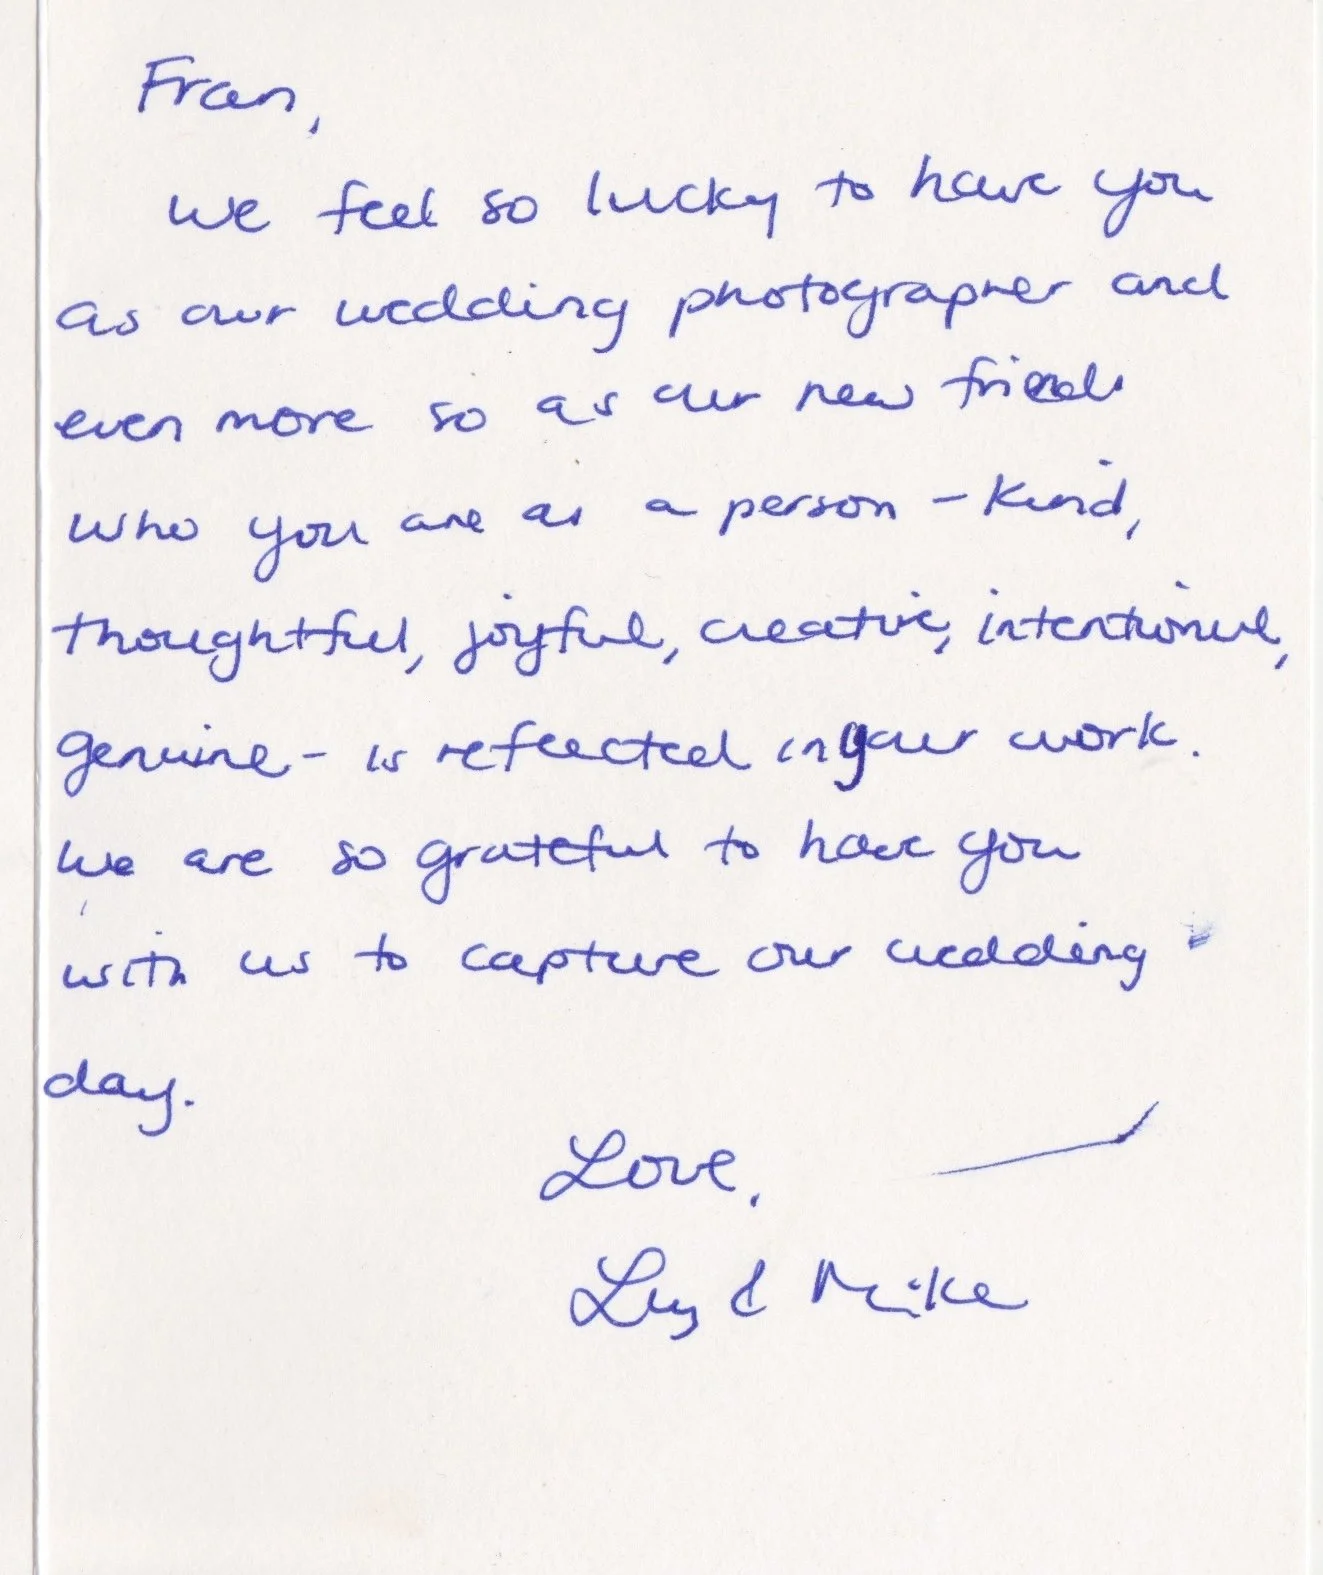 Fran,
We feel so lucky to have you
as our wedding photographer and
even more so as our new friend.
Who you are as a person - Kind,
thoughtful, joyful, creative, intentional,
genuine - is reflected in your work.
We are so grateful to have you
with us to capture our wedding
day.
Love,
& Mike